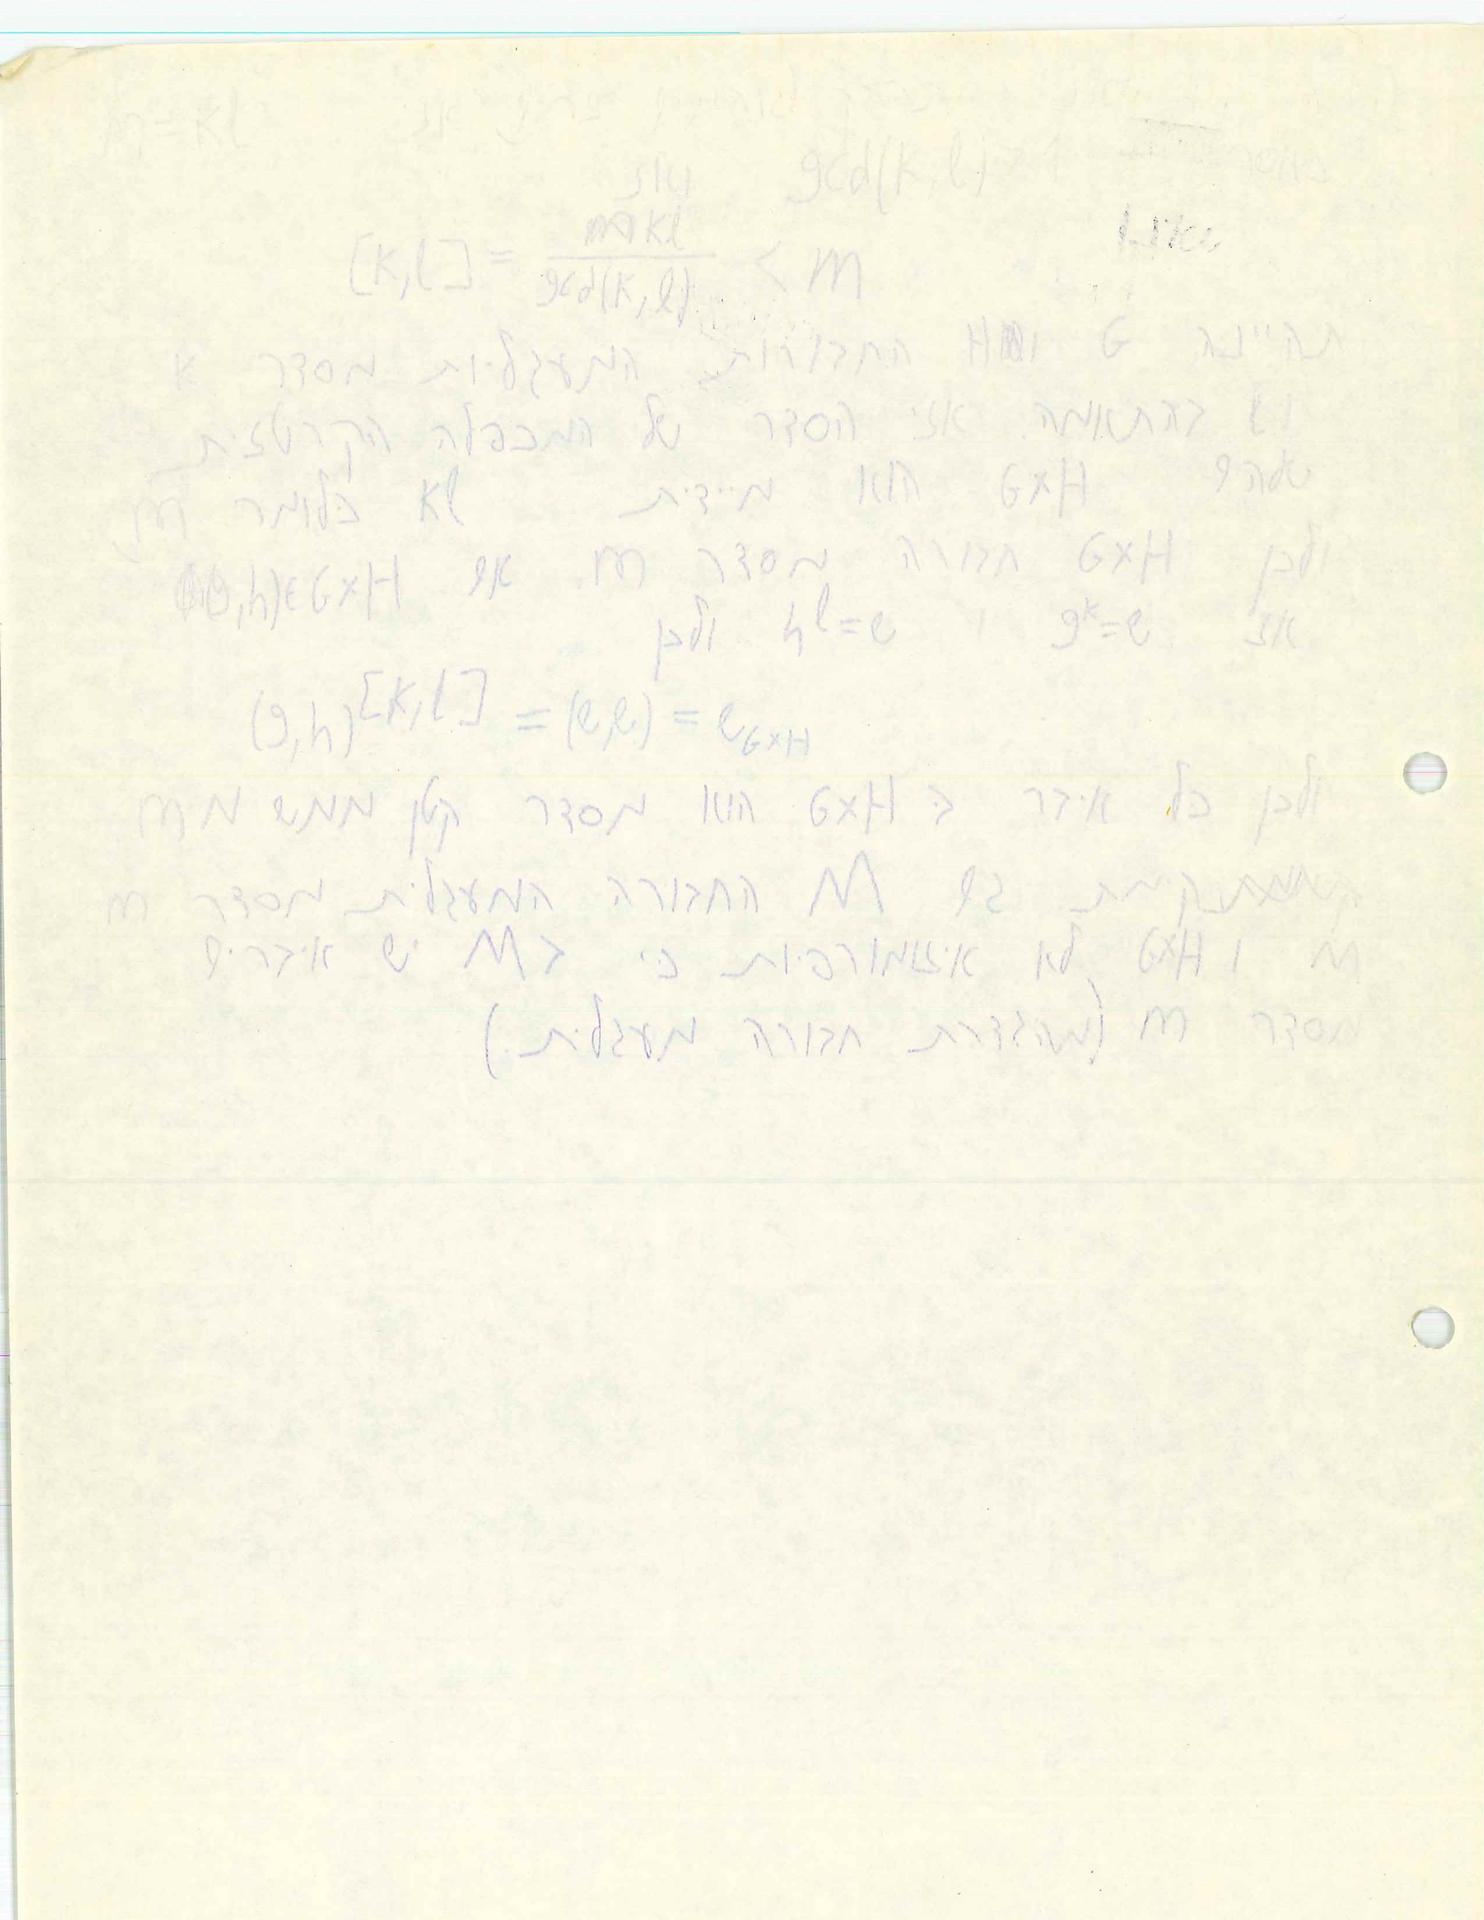 m=kl
כאשר gcd(k,l) > 1 ואז
[k,l] = kl/gcd(k,l) < m
תהיינה G ו H החבורות המעגליות מסדר k
ו l בהתאמה. אזי הסדר של המכפלה הקרטזית
שלהם G×H הוא מיידית kl כלומר m
ולכן G×H חבורה מסדר m. אם (g,h)∈G×H
אז g^k=e ו h^l=e ולכן
(g,h)^[k,l] = (e,e) = e_{G×H}
ולכן כל איבר ב G×H הוא מסדר קטן ממש מ m
קיימת גם M החבורה המעגלית מסדר m
M ו G×H לא איזומורפיות כי ב M יש איברים
מסדר m (מהגדרת חבורה מעגלית.)